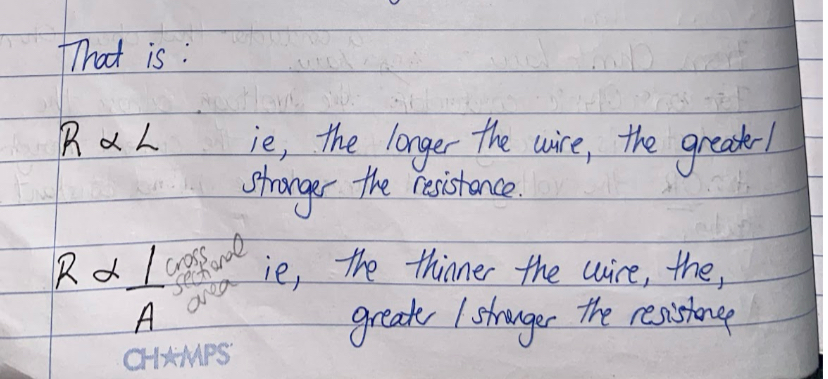 That is :
R α L ie, the longer the wire, the greater/
stronger the resistance.
R α 1/A cross sectional area ie, the thinner the wire, the,
greater / stronger the resistance
CHAMPS